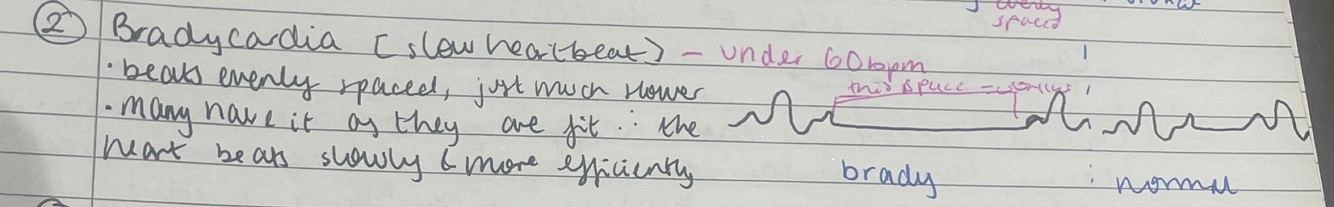 evenly
spaced
② Bradycardia (slow heartbeat) - under 60bpm
· beats evenly spaced, just much slower
this space =
· many have it as they are fit ∴ the
heart beats slowly & more efficiently
brady
normal